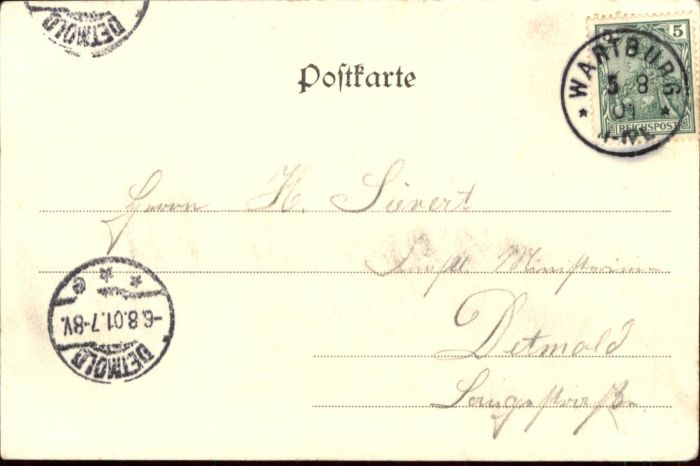 DETMOLD
Postkarte
5
REICHSPOST
* WARTBURG *
5 8
01
Herrn H. Sievert
Ministerium
Detmold
Langestraße
* * e
-6.8.01.7-8V.
DETMOLD